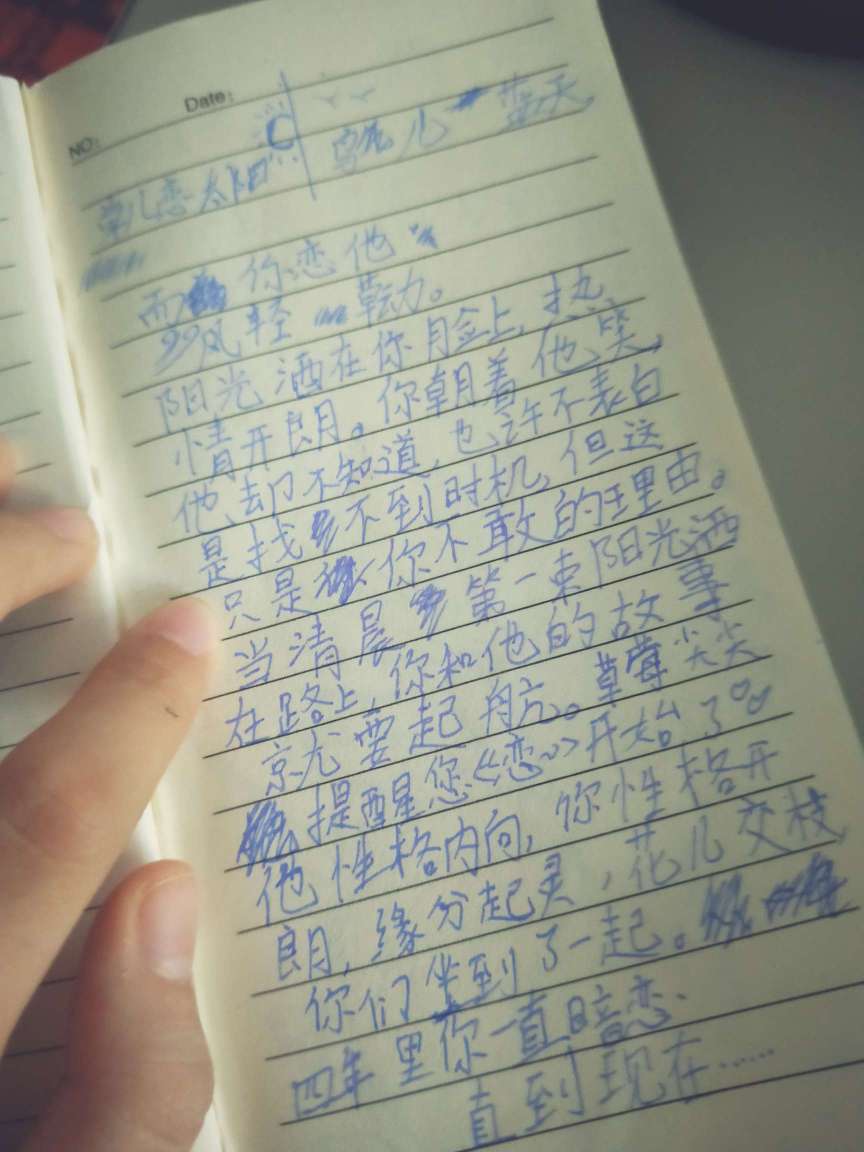 NO: Date:
恋太阳 鸟儿 蓝天
而 你恋他
风轻 動。
阳光洒在你脸上,热
情开朗。你朝着他笑,
他却不知道,也许不表白
是找不到时机,但这
只是你不敢的理由。
当清晨第一束阳光洒
在路上,你和他的故事
就要起航。草莓尖尖
提醒您《恋》开始了
他性格内向,你性格开
朗,缘分起灵,花儿交枝,
你们坐到了一起。
四年里你一直暗恋.
直到现在……